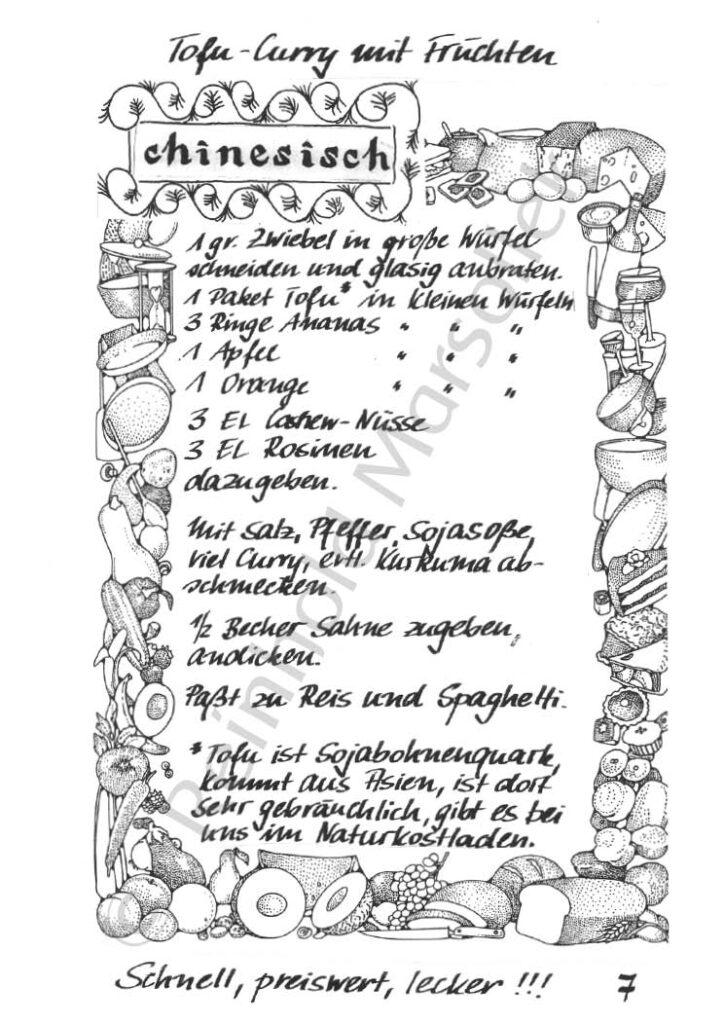 Tofu-Curry mit Früchten
chinesisch
1 gr. Zwiebel in große Würfel
schneiden und glasig anbraten.
1 Paket Tofu* in kleinen Würfeln
3 Ringe Ananas " " "
1 Apfel " " "
1 Orange " " "
3 EL Cashew-Nüsse
3 EL Rosinen
dazugeben.
Mit Salz, Pfeffer, Sojasoße,
viel Curry, evtl. Kurkuma ab-
schmecken.
1/2 Becher Sahne zugeben,
andicken.
Paßt zu Reis und Spaghetti.
* Tofu ist Sojabohnenquark,
kommt aus Asien, ist dort
sehr gebräuchlich, gibt es bei
uns im Naturkostladen.
Schnell, preiswert, lecker !!! 7
© Reinhold Marsollek